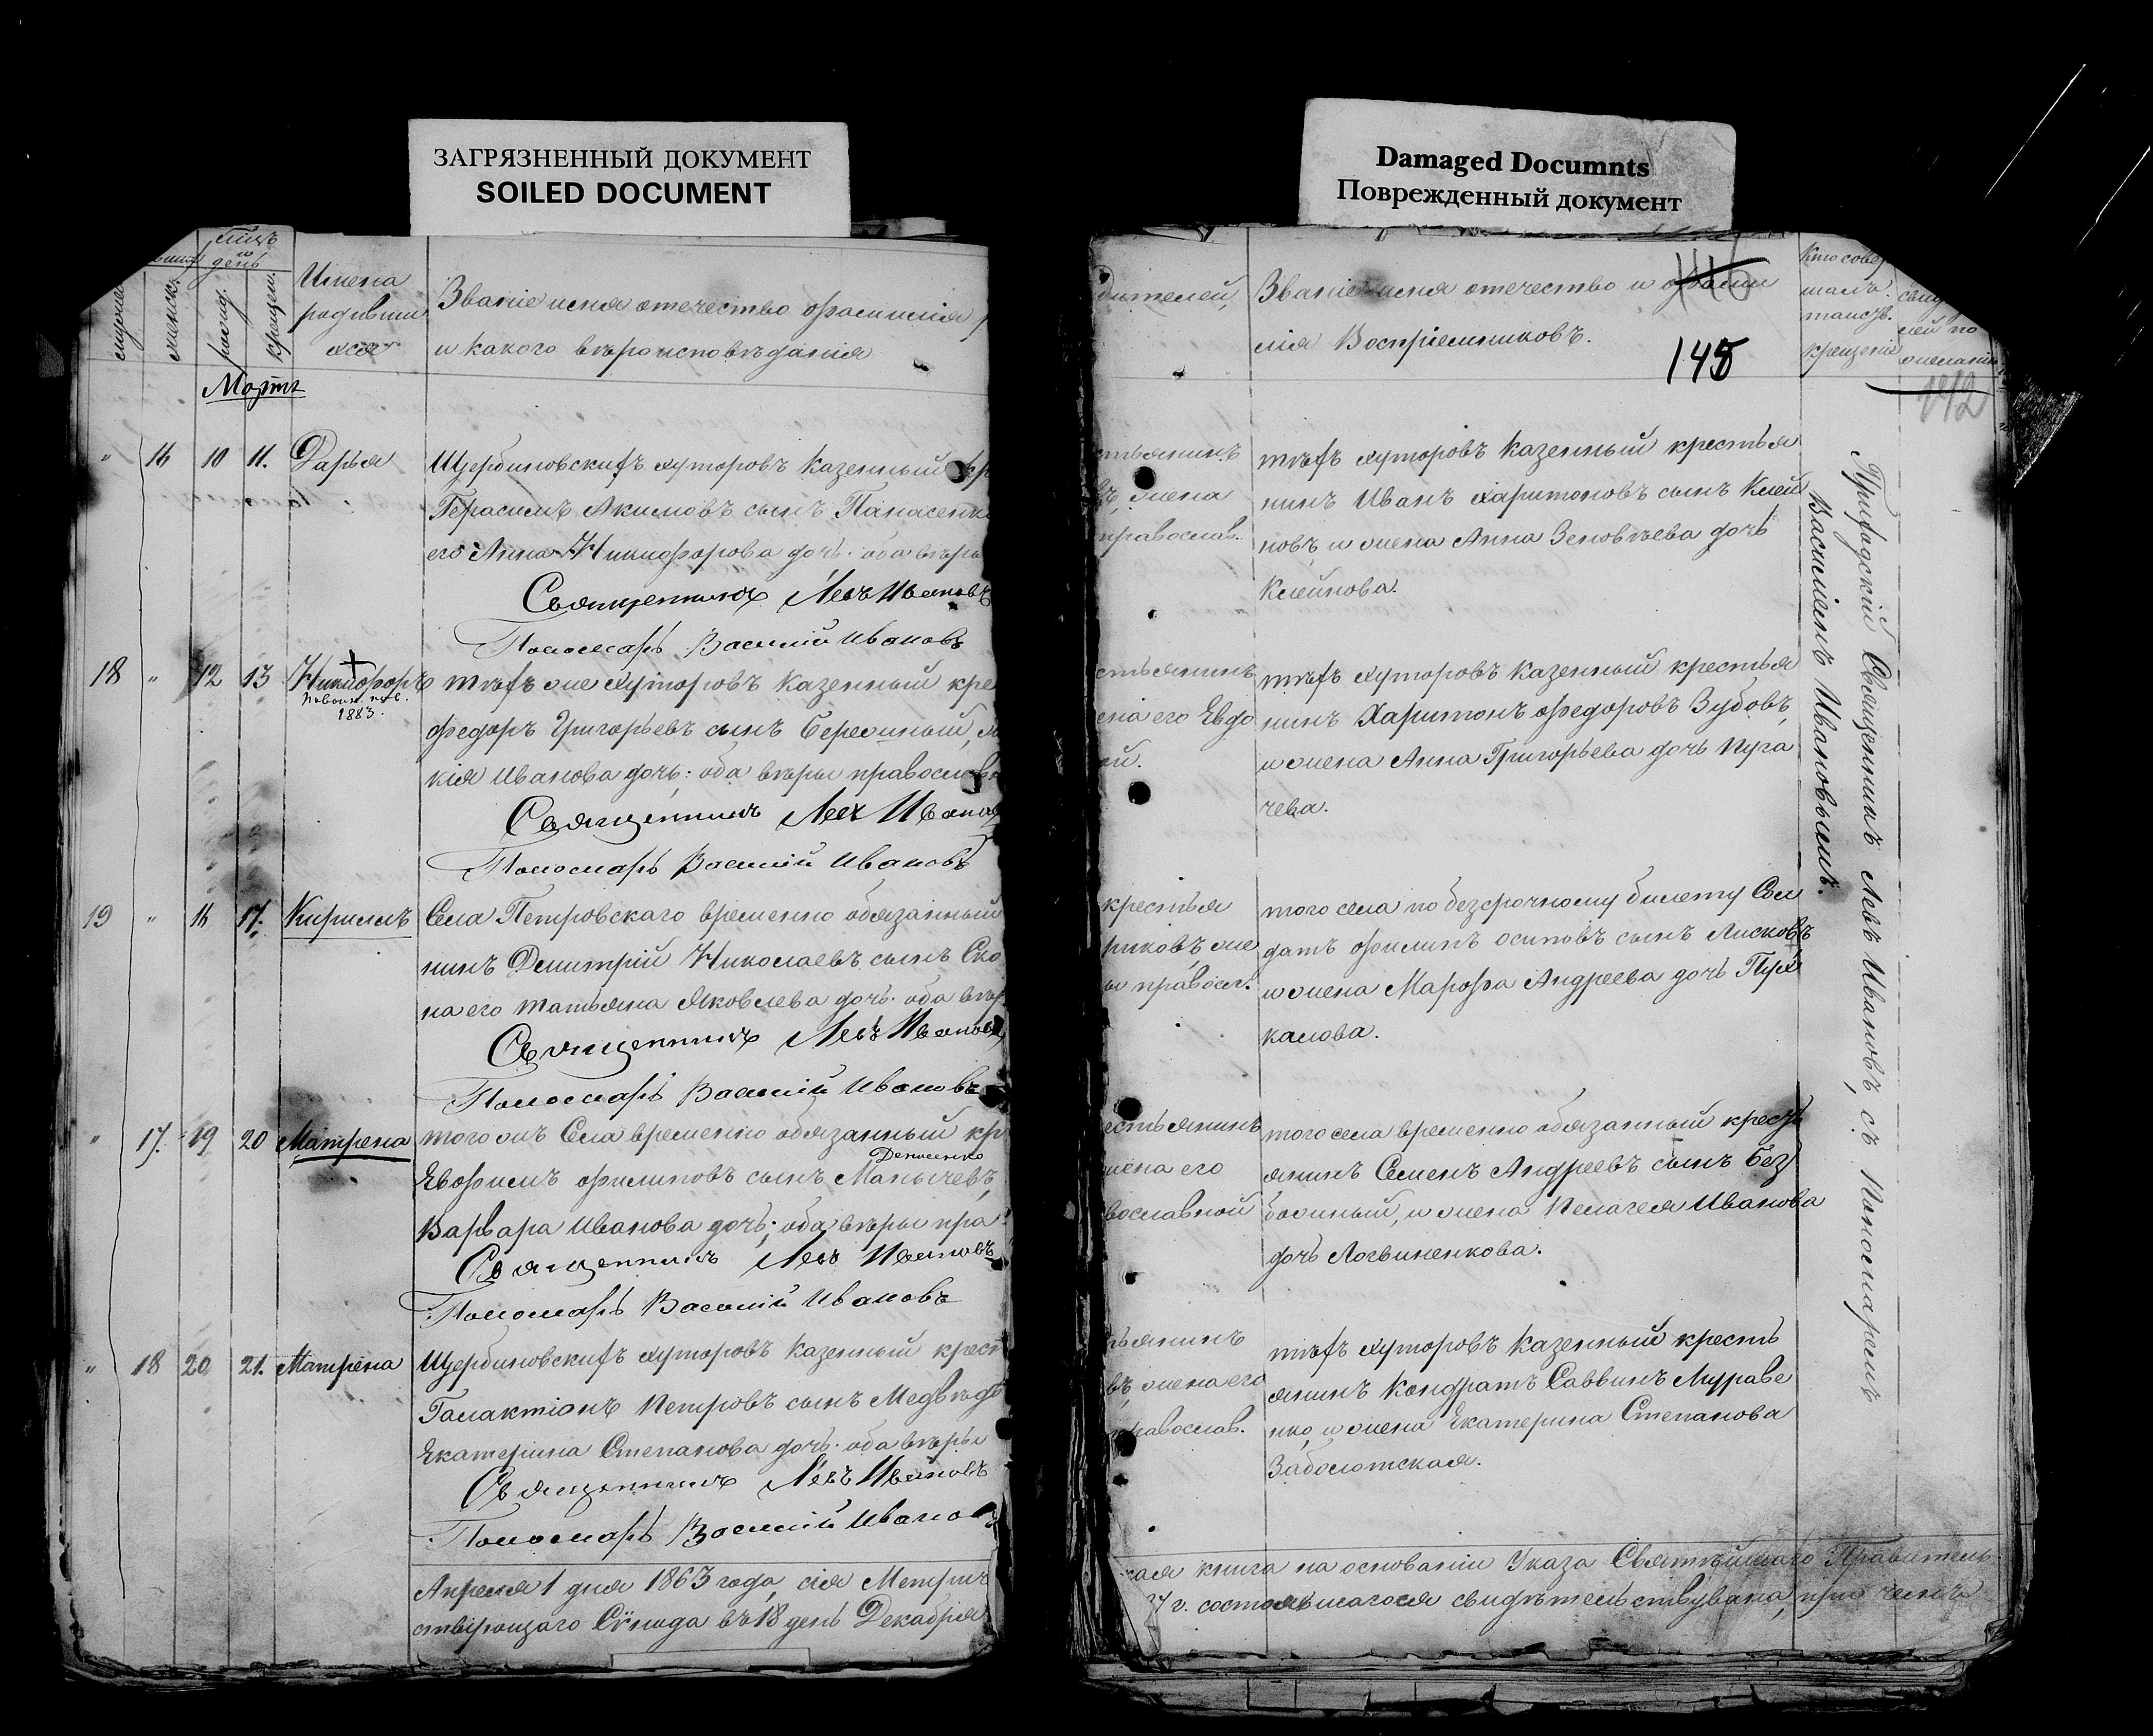 ЗАГРЯЗНЕННЫЙ ДОКУМЕНТ
SOILED DOCUMENT
мѣсцъ и день
женск.
рожд.
крещен.
Имена родивши
хся
Званіе имя отечество фамилія
и какого вѣроисповѣданія
Мартъ
" 16 10 11. Дарья
Щербиновскихъ хуторовъ казенный кр
Герасимъ Акимовъ сынъ Панасенк
его Анна Никифорова дочь. оба вѣры
Священникъ Левъ Ивановъ
Пономарь Василій Ивановъ
18 " 12 13 Никифоръ
1883.
тѣхъ же хуторовъ казенный кре
Федоръ Григорьевъ сынъ Бережный, ж
кія Иванова дочь: оба вѣры православн
Священникъ Левъ Иванов
Пономарь Василій Ивановъ
19 " 16 17. Кириллъ
Села Петровскаго временно обязанный
нинъ Димитрій Николаевъ сынъ Ско
на его Татьяна Яковлева дочь. оба вѣр
Священникъ Левъ Ивановъ
Пономарь Василій Ивановъ
" 17. 19 20 Матрена
того жъ Села временно обязанный кр
Денисенко
Евфимъ Филиповъ сынъ Манычевъ,
Варвара Иванова дочь; оба вѣры пра
Священникъ Левъ Ивановъ
Пономарь Василій Ивановъ
" 18 20 21. Матрена
Щербиновскихъ хуторовъ казенный крест
Галактіонъ Петровъ сынъ Медвѣд
Екатерина Степанова дочь. оба вѣры
Священникъ Левъ Ивановъ
Пономарь Василій Иванов
Апреля 1 дня 1863 года, сія Метрич
ствующаго Сѵнода въ 18 день Декабря
Damaged Documnts
Поврежденный документ
дителей,
Званіе имя отечество и фами
лія Воспріемниковъ.
116
145
142
Кто совер
шалъ
таинст.
крещенія
стьянинъ
въ, жена
православ.
тѣхъ хуторовъ казенный крестья
нинъ Иванъ Харитоновъ сынъ Клей
новъ и жена Анна Зеновьева дочь
Клейнова.
стьянинъ
ена его Евдо
ой.
тѣхъ хуторовъ казенный крестья
нинъ Харитонъ Федоровъ Зубовъ,
и жена Анна Григорьева дочь Пуга
чева.
крестья
риковъ же
ы правосл.
того села по безсрочному билету Сол
датъ Филипъ Осиповъ сынъ Лисковъ
и жена Марфа Андреева дочь Пух
калова.
естьянинъ
жена его
вославной
того села временно обязанный крест
янинъ Семенъ Андреевъ сынъ Без
божный, и жена Пелагея Иванова
дочь Логвиненкова.
тьянинъ
въ, жена его
православ.
тѣхъ хуторовъ казенный кресть
янинъ Кондратъ Саввинъ Мураве
нко, и жена Екатерина Степанова
Заболотская.
Приходскій Священникъ Левъ Ивановъ, съ Пономаремъ
Василіемъ Ивановымъ.
кая книга на основаніи Указа Святѣйшаго Правитель
7 г. состоявшагося свидѣтельствувана, при чемъ